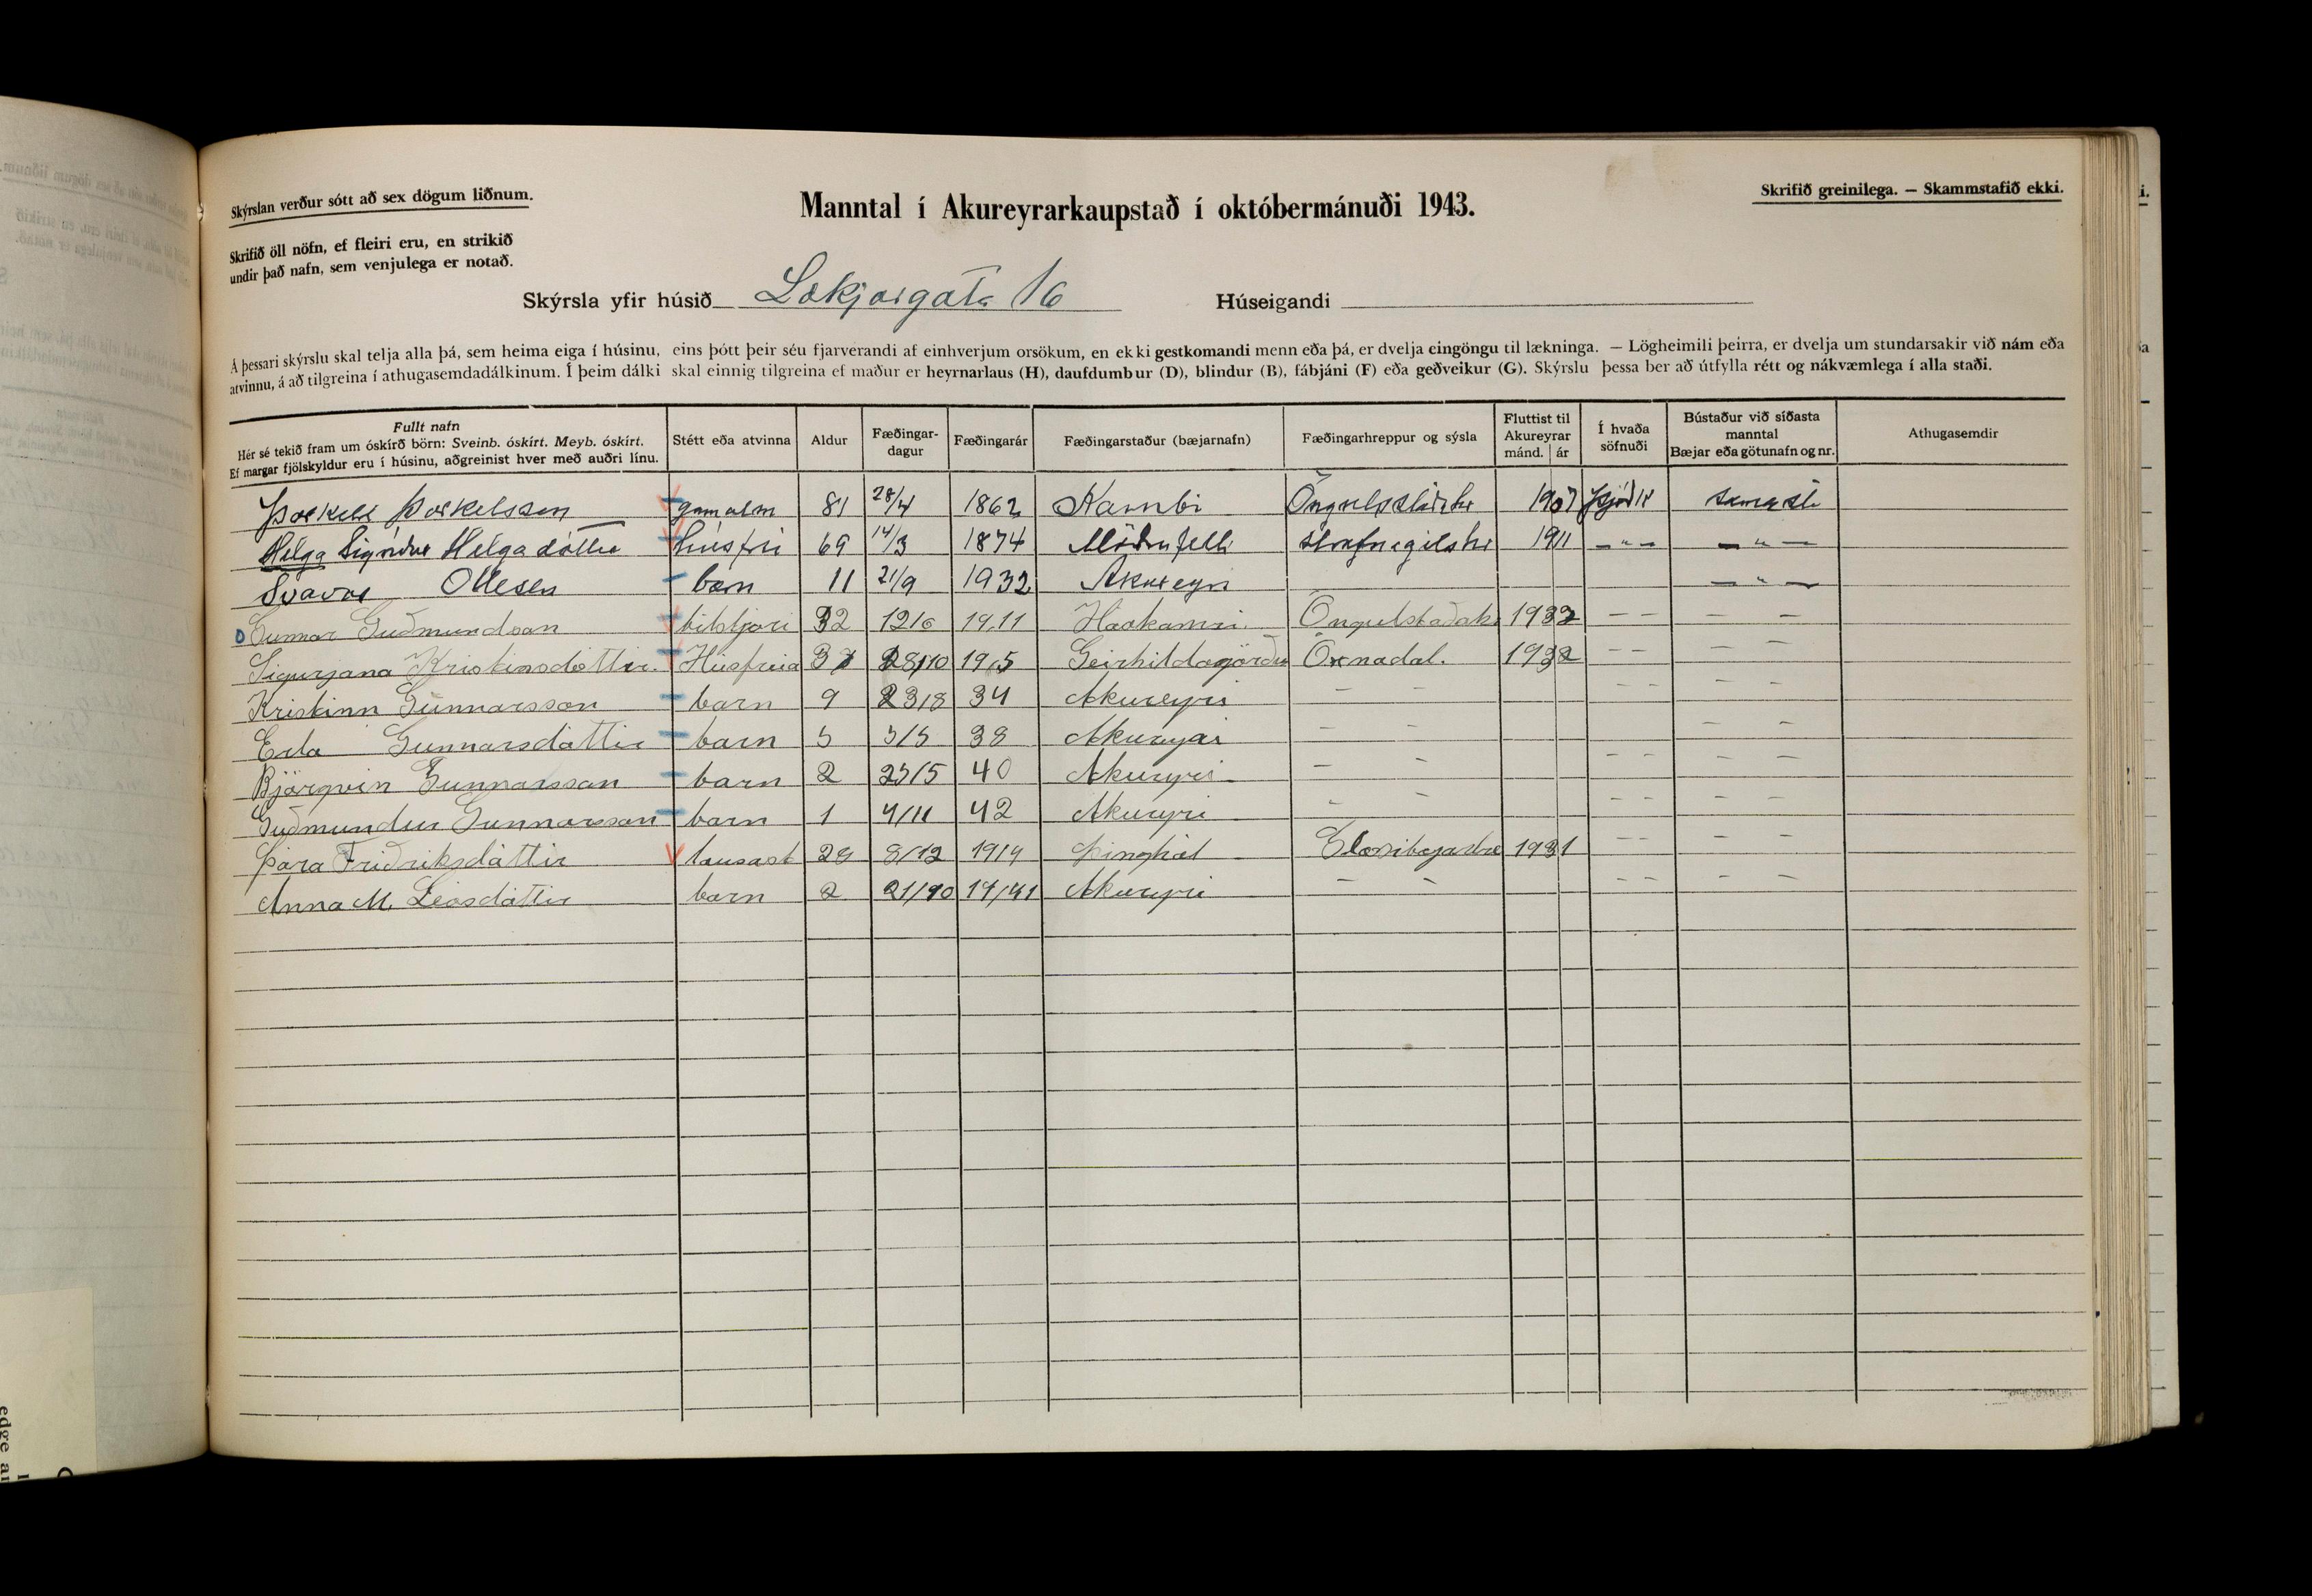 Skýrslan verður sótt að sex dögum liðnum.
Manntal í Akureyrarkaupstað í októbermánuði 1943.
Skrifið greinilega. — Skammstafið ekki.
Skrifið öll nöfn, ef fleiri eru, en strikið
undir það nafn, sem venjulega er notað.
Skýrsla yfir húsið Lækjargata 16 Húseigandi
Á þessari skýrslu skal telja alla þá, sem heima eiga í húsinu, eins þótt þeir séu fjarverandi af einhverjum orsökum, en ekki gestkomandi menn eða þá, er dvelja eingöngu til lækninga. — Lögheimili þeirra, er dvelja um stundarsakir við nám eða
atvinnu, á að tilgreina í athugasemdadálkinum. Í þeim dálki skal einnig tilgreina ef maður er heyrnarlaus (H), daufdumbur (D), blindur (B), fábjáni (F) eða geðveikur (G). Skýrslu þessa ber að útfylla rétt og nákvæmlega í alla staði.
Fullt nafn
Hér sé tekið fram um óskírð börn: Sveinb. óskírt. Meyb. óskírt.
Ef margar fjölskyldur eru í húsinu, aðgreinist hver með auðri línu.
Stétt eða atvinna
Aldur
Fæðingar-
dagur
Fæðingarár
Fæðingarstaður (bæjarnafn)
Fæðingarhreppur og sýsla
Fluttist til
Akureyrar
mánd. ár
Í hvaða
söfnuði
Bústaður við síðasta
manntal
Bæjar eða götunafn og nr.
Athugasemdir
Þorkell Þorkelsson gamalm 81 28/4 1862 Kambi 1907
Helga Sigríður Helgadóttir húsfrú 69 14/3 1874 Möðrufelli Hrafnagilshr 1911 —"— —"—
Svavar Ottesen barn 11 21/9 1932 Akureyri —"—
Gunnar Guðmundsson bílstjóri 32 12/6 1911 Öngulstaðah. 1932 — — — —
Sigurjana Kristinsdóttir. Húsfreia 37 28/10 1905 Geirhildargörðu Öxnadal. 1932 — — — —
Kristinn Gunnarsson barn 9 23/8 34 Akureyri — — — — — —
Erla Gunnarsdóttir barn 5 5/5 38 Akureyri — — — —
Björgvin Gunnarsson barn 2 25/5 40 Akureyri — — — — — —
Guðmundur Gunnarsson barn 1 4/11 42 Akureyri — — — — — —
Þóra Friðriksdóttir lausast 28 8/12 1914 Glæsibæjarhr 1931 — — — —
Anna M. Leósdóttir barn 2 21/10 19/41 Akureyri — — — — — —